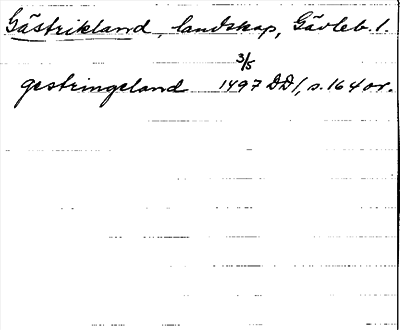 Gästrikland, landskap, Gävleb. l.
3/5
gestringeland 1497 DD 1, s. 164 or.